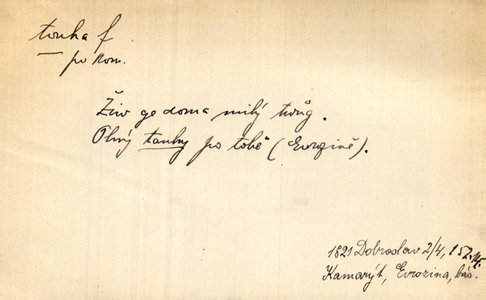 touha f
— po kom.
Živ ge doma milý twůg.
Plný tauhy po tobě (Evrozině).
1821 Dobroslav 2/4, 152.
Kamarýt, Evrozina, bás.